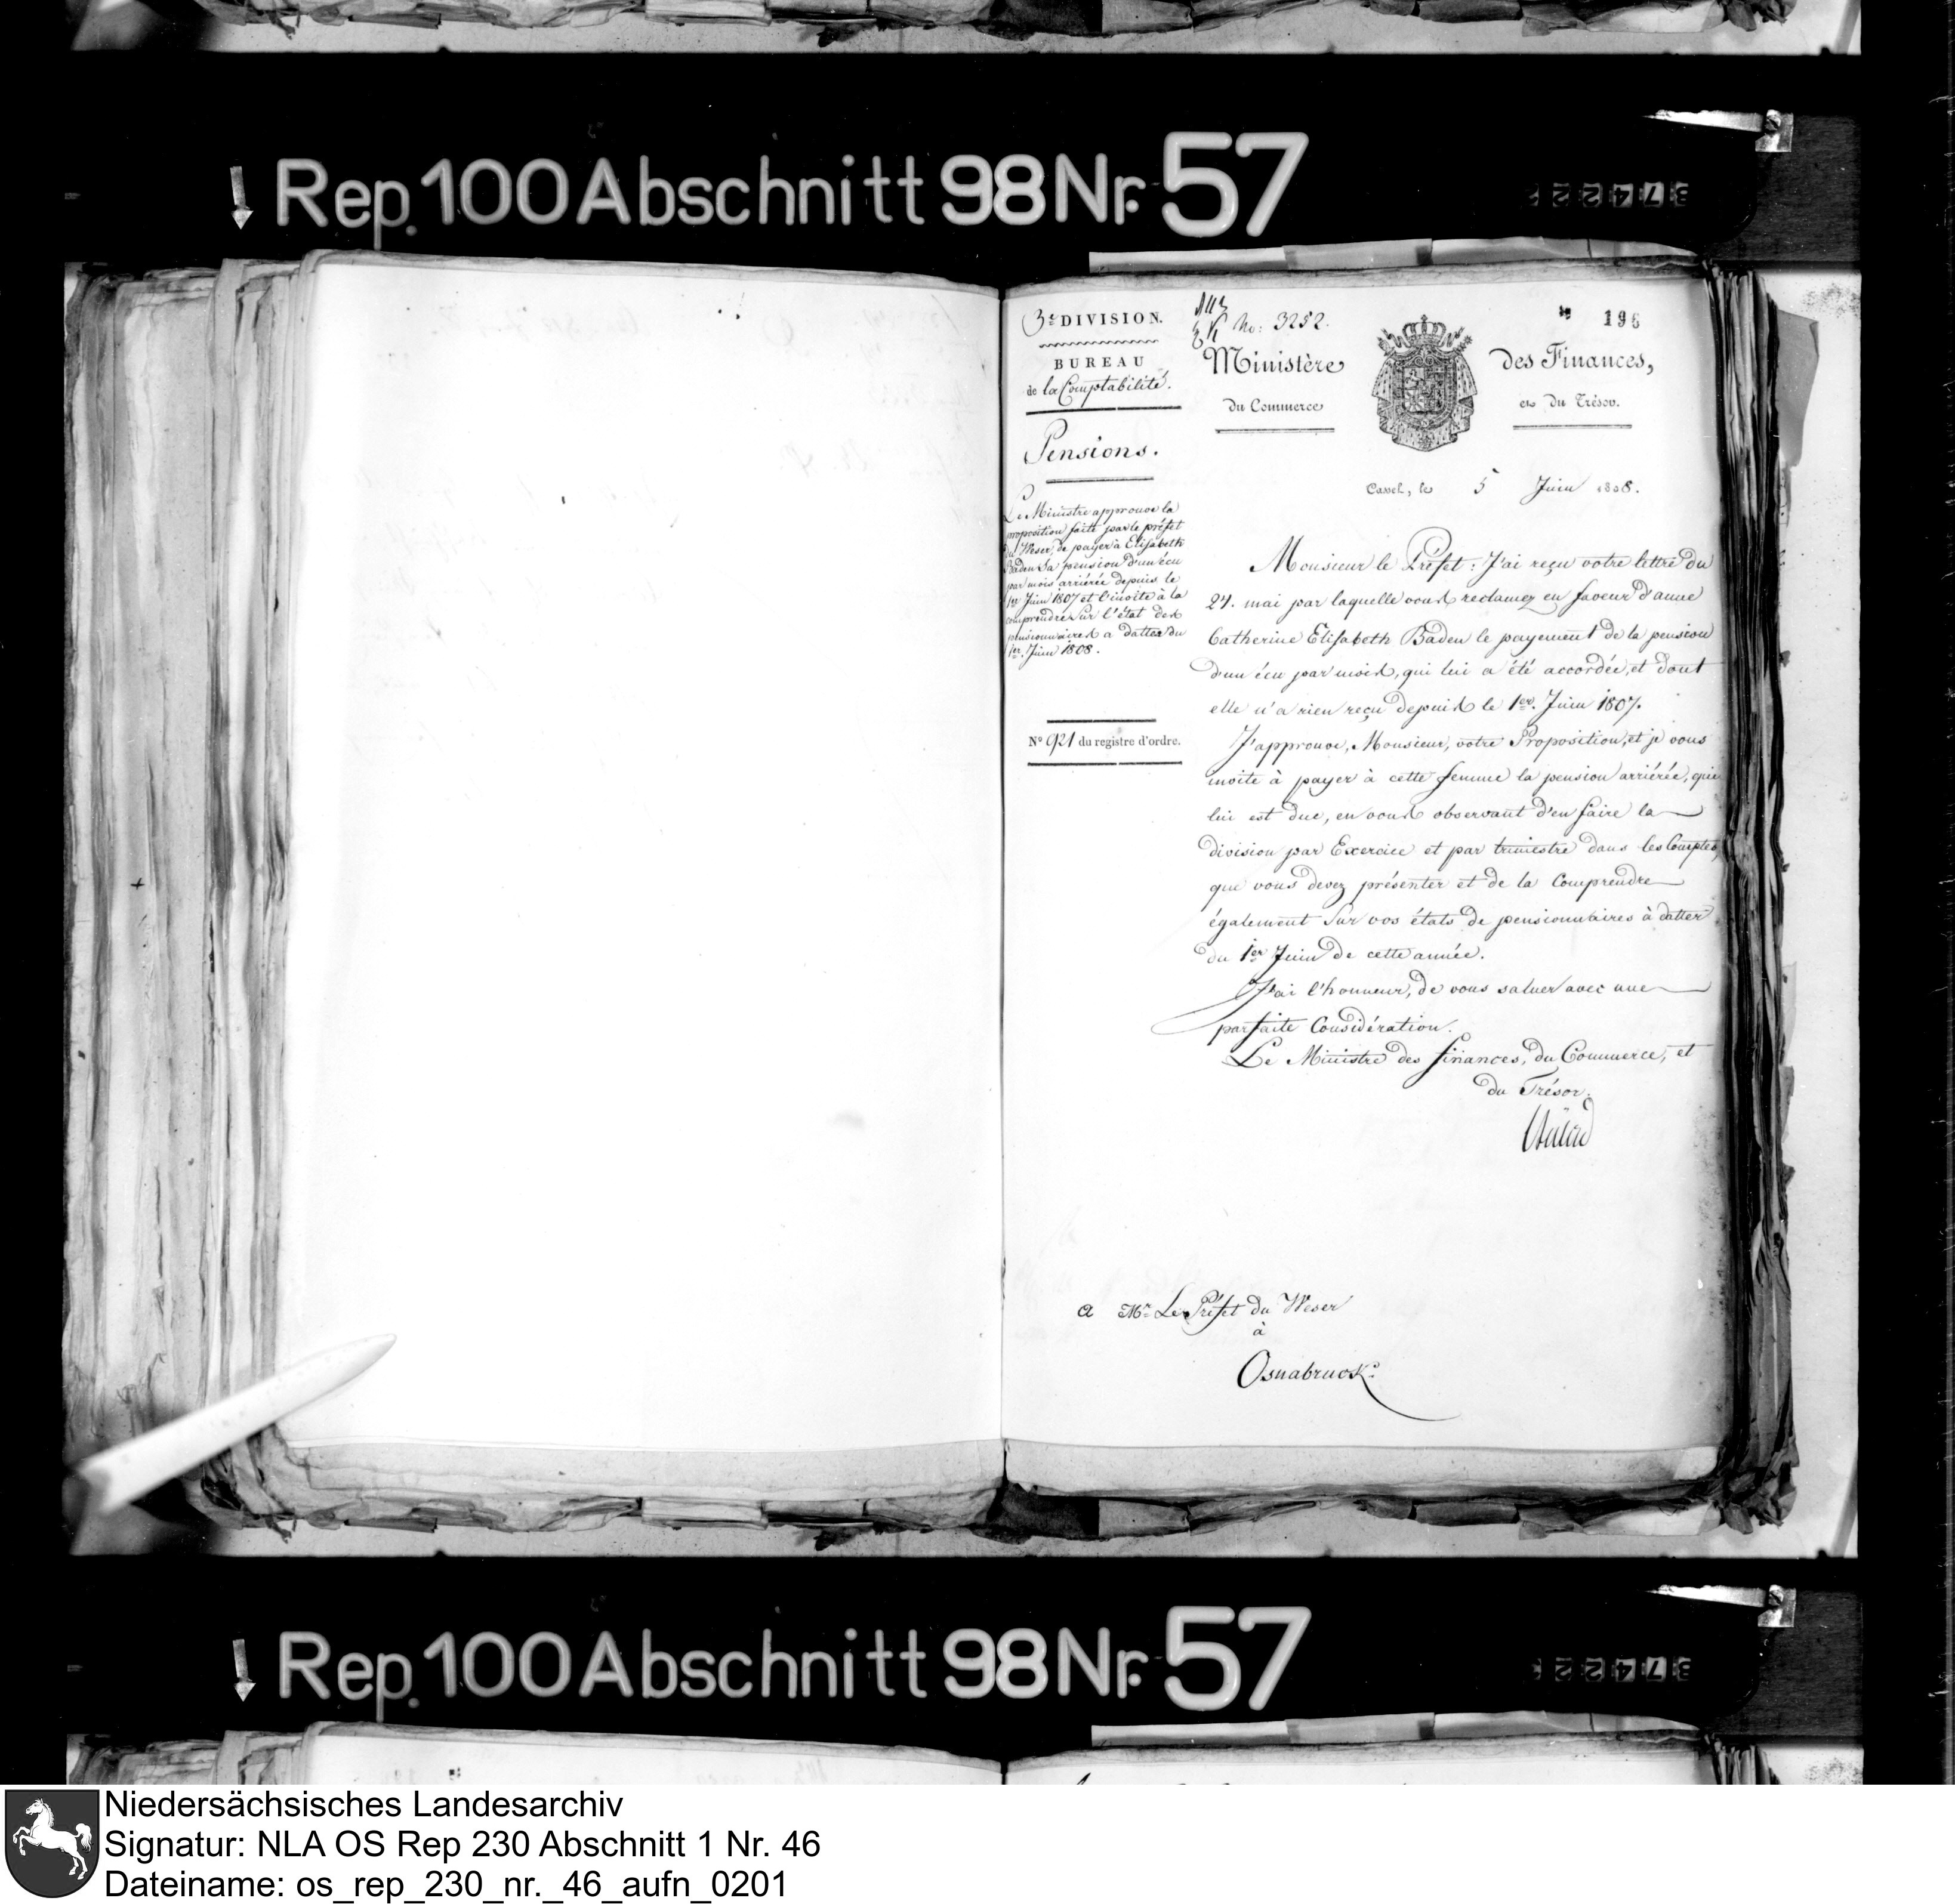 Rep. 100 Abschnitt 98 Nr. 57
3e. DIVISION.
BUREAU
de la Comptabilité.
Pensions.
Le Ministre approuve la
proposition faite par le préfet
du Weser, de payer à Elisabeth
Baden sa pension d'un écu
par mois arriérée depuis le
1er Juin 1807 et l'invite à la
comprendre sur l'état des
pensionnaires a datter du
1er. Juin 1808.
No 921 du registre d'ordre.
No: 3252.
196
Ministère des Finances,
du Commerce et du Trésor.
Cassel, le 5 Juin 1808.
Monsieur le Préfet: J'ai reçu votre lettre du
24. mai par laquelle vous reclamez en faveur d'anne
Catherine Elisabeth Baden le payement de la pension
d'un écu par mois, qui lui a été accordée, et dont
elle n'a rien reçu depuis le 1er. Juin 1807.
J'approuve, Monsieur, votre Proposition, et je vous
invite à payer à cette femme la pension arriérée, qui
lui est due, en vous observant d'en faire la
division par Exercice et par trimestre dans les Comptes,
que vous devez présenter et de la Comprendre
également sur vos états de pensionnaires à datter
du 1er Juin de cette année.
J'ai l'honneur, de vous saluer avec une
parfaite Considération.
Le Ministre des finances, du Commerce, et
du Trésor.
a Mr. Le Préfet du Weser
à
Osnabruck.
Rep. 100 Abschnitt 98 Nr. 57
Niedersächsisches Landesarchiv
Signatur: NLA OS Rep 230 Abschnitt 1 Nr. 46
Dateiname: os_rep_230_nr._46_aufn_0201